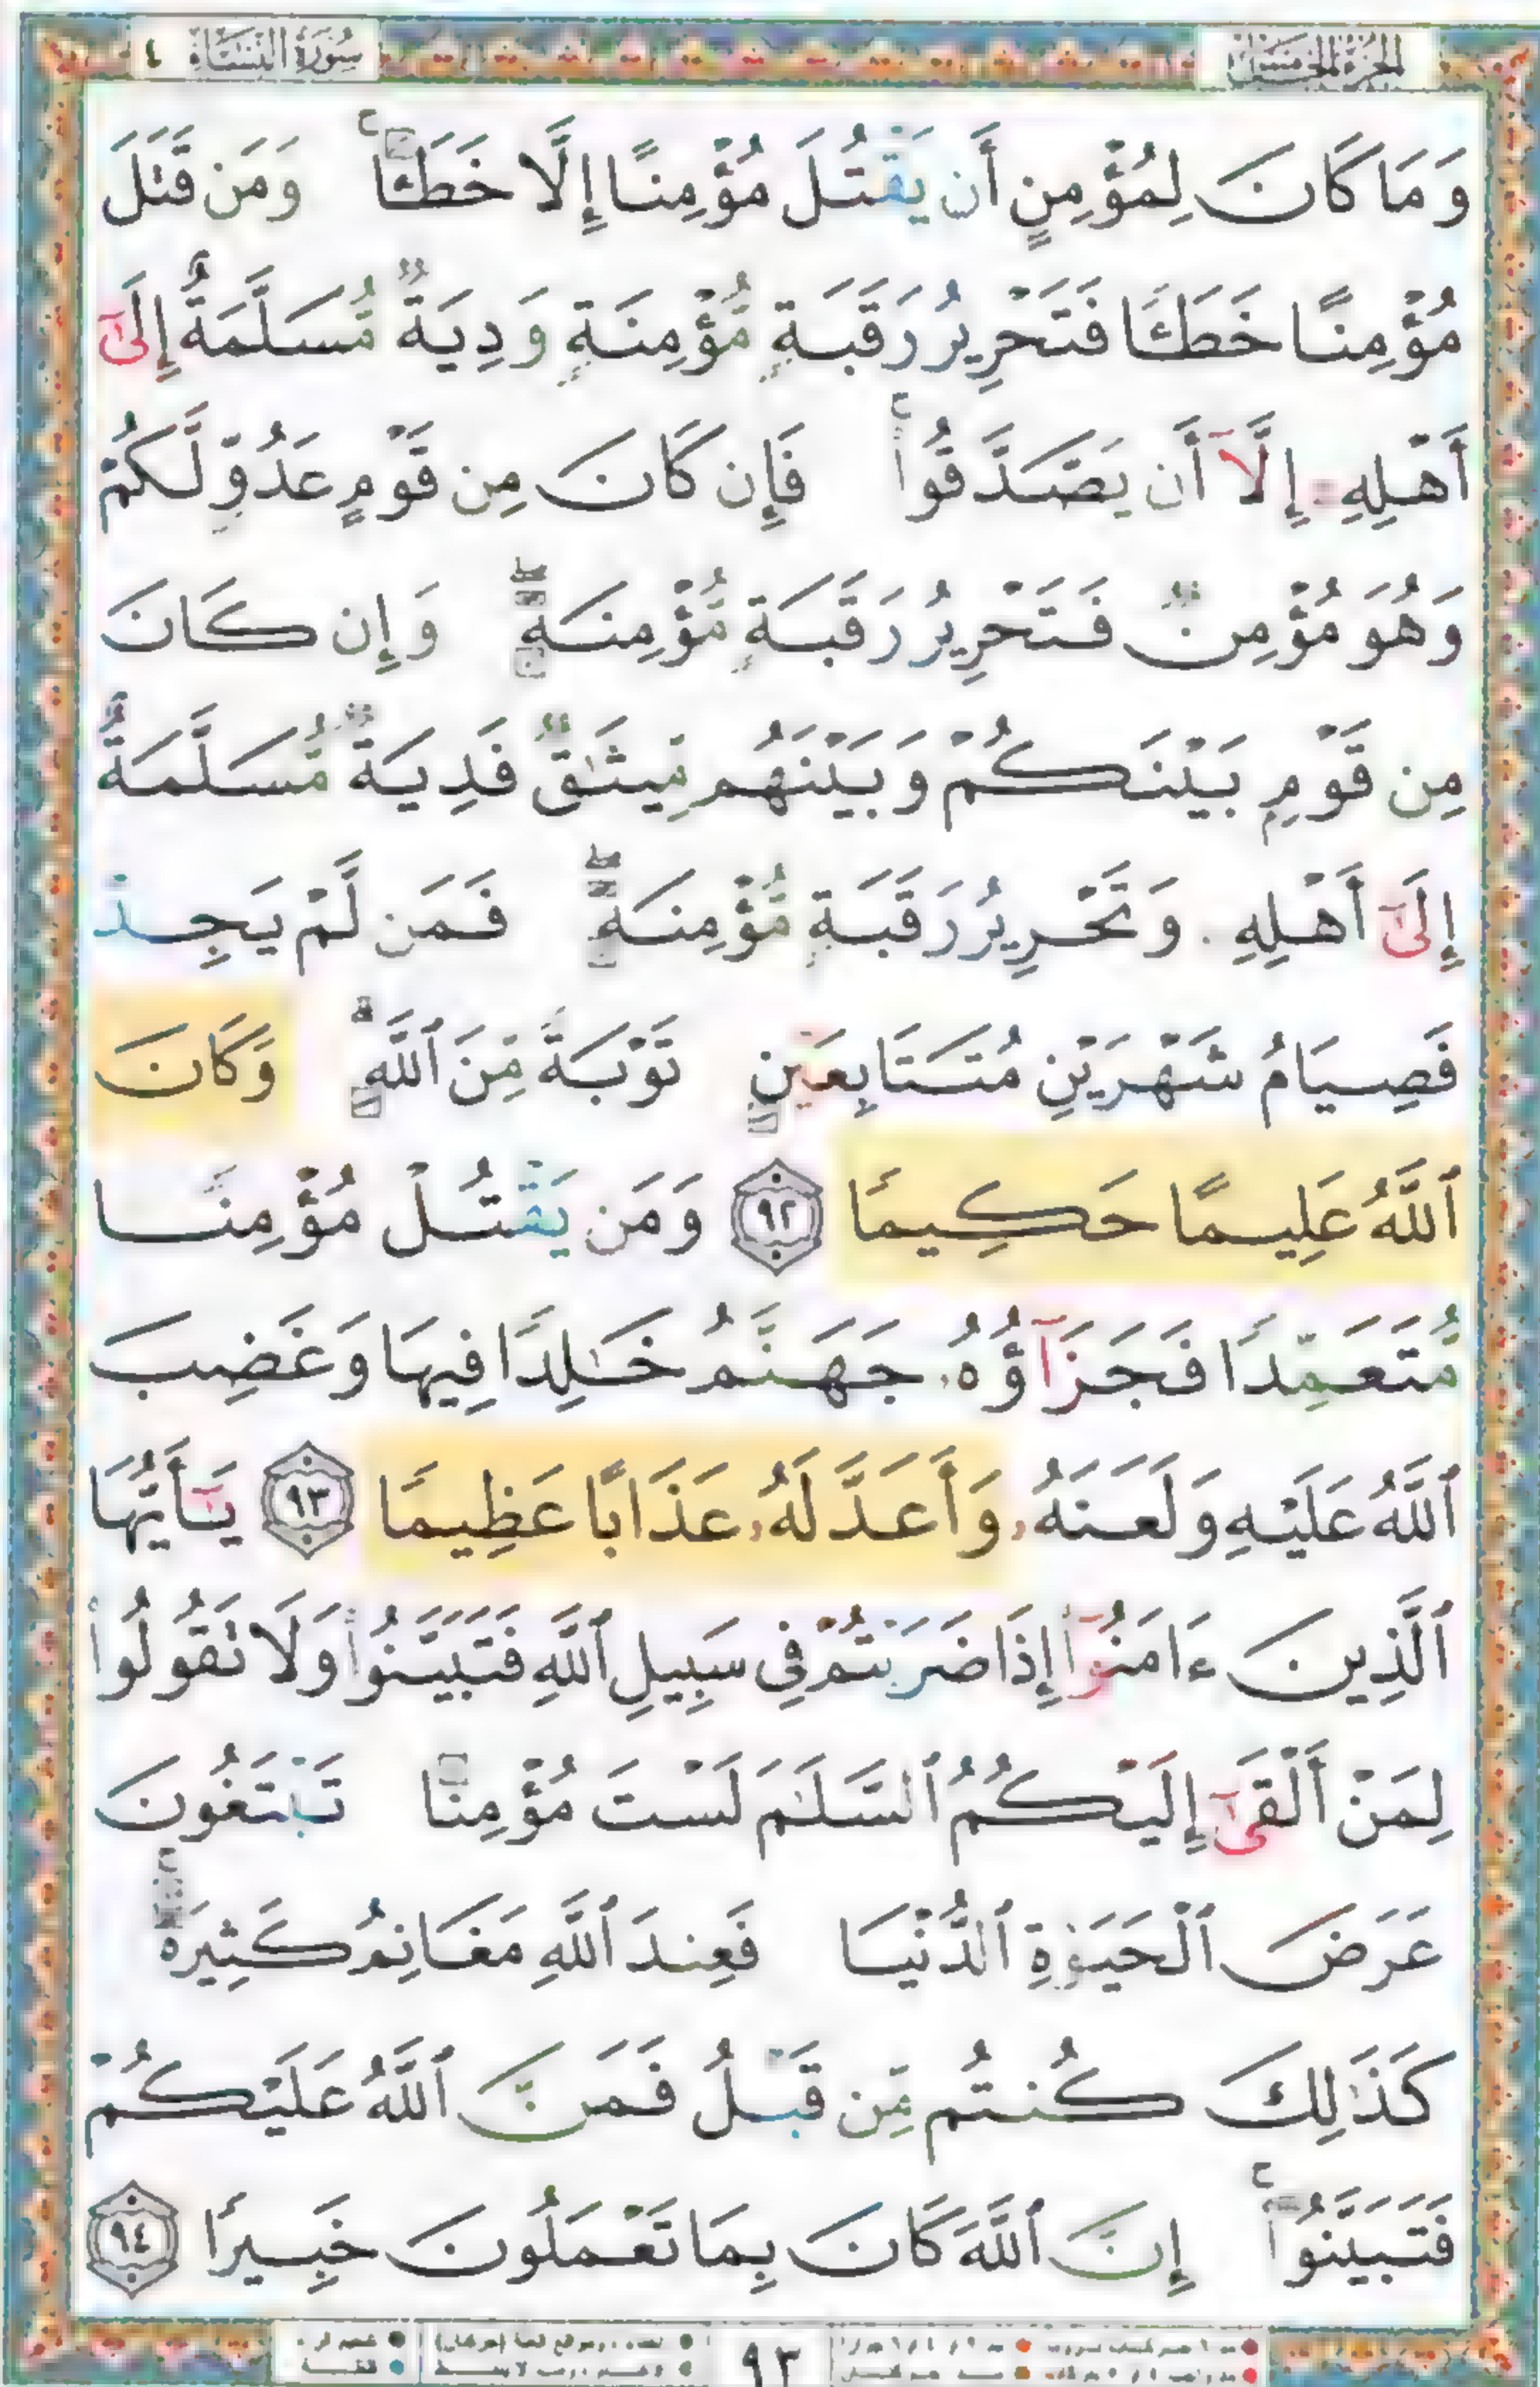 سُورَةُ النِّسَاءِ ٤
الجُزْءُ الخَامِسُ
وَمَا كَانَ لِمُؤْمِنٍ أَن يَقْتُلَ مُؤْمِنًا إِلَّا خَطَـًٔا ۚ وَمَن قَتَلَ
مُؤْمِنًا خَطَـًٔا فَتَحْرِيرُ رَقَبَةٍ مُّؤْمِنَةٍ وَدِيَةٌ مُّسَلَّمَةٌ إِلَىٰٓ
أَهْلِهِۦٓ إِلَّآ أَن يَصَّدَّقُوا۟ ۚ فَإِن كَانَ مِن قَوْمٍ عَدُوٍّ لَّكُمْ
وَهُوَ مُؤْمِنٌ فَتَحْرِيرُ رَقَبَةٍ مُّؤْمِنَةٍ ۖ وَإِن كَانَ
مِن قَوْمٍۭ بَيْنَكُمْ وَبَيْنَهُم مِّيثَٰقٌ فَدِيَةٌ مُّسَلَّمَةٌ
إِلَىٰٓ أَهْلِهِۦ وَتَحْرِيرُ رَقَبَةٍ مُّؤْمِنَةٍ ۖ فَمَن لَّمْ يَجِدْ
فَصِيَامُ شَهْرَيْنِ مُتَتَابِعَيْنِ تَوْبَةً مِّنَ ٱللَّهِ ۗ وَكَانَ
ٱللَّهُ عَلِيمًا حَكِيمًا ٩٢ وَمَن يَقْتُلْ مُؤْمِنًا
مُّتَعَمِّدًا فَجَزَآؤُهُۥ جَهَنَّمُ خَٰلِدًا فِيهَا وَغَضِبَ
ٱللَّهُ عَلَيْهِ وَلَعَنَهُۥ وَأَعَدَّ لَهُۥ عَذَابًا عَظِيمًا ٩٣ يَٰٓأَيُّهَا
ٱلَّذِينَ ءَامَنُوٓا۟ إِذَا ضَرَبْتُمْ فِى سَبِيلِ ٱللَّهِ فَتَبَيَّنُوا۟ وَلَا تَقُولُوا۟
لِمَنْ أَلْقَىٰٓ إِلَيْكُمُ ٱلسَّلَٰمَ لَسْتَ مُؤْمِنًا تَبْتَغُونَ
عَرَضَ ٱلْحَيَوٰةِ ٱلدُّنْيَا فَعِندَ ٱللَّهِ مَغَانِمُ كَثِيرَةٌ ۚ
كَذَٰلِكَ كُنتُم مِّن قَبْلُ فَمَنَّ ٱللَّهُ عَلَيْكُمْ
فَتَبَيَّنُوٓا۟ ۚ إِنَّ ٱللَّهَ كَانَ بِمَا تَعْمَلُونَ خَبِيرًا ٩٤
٩٣